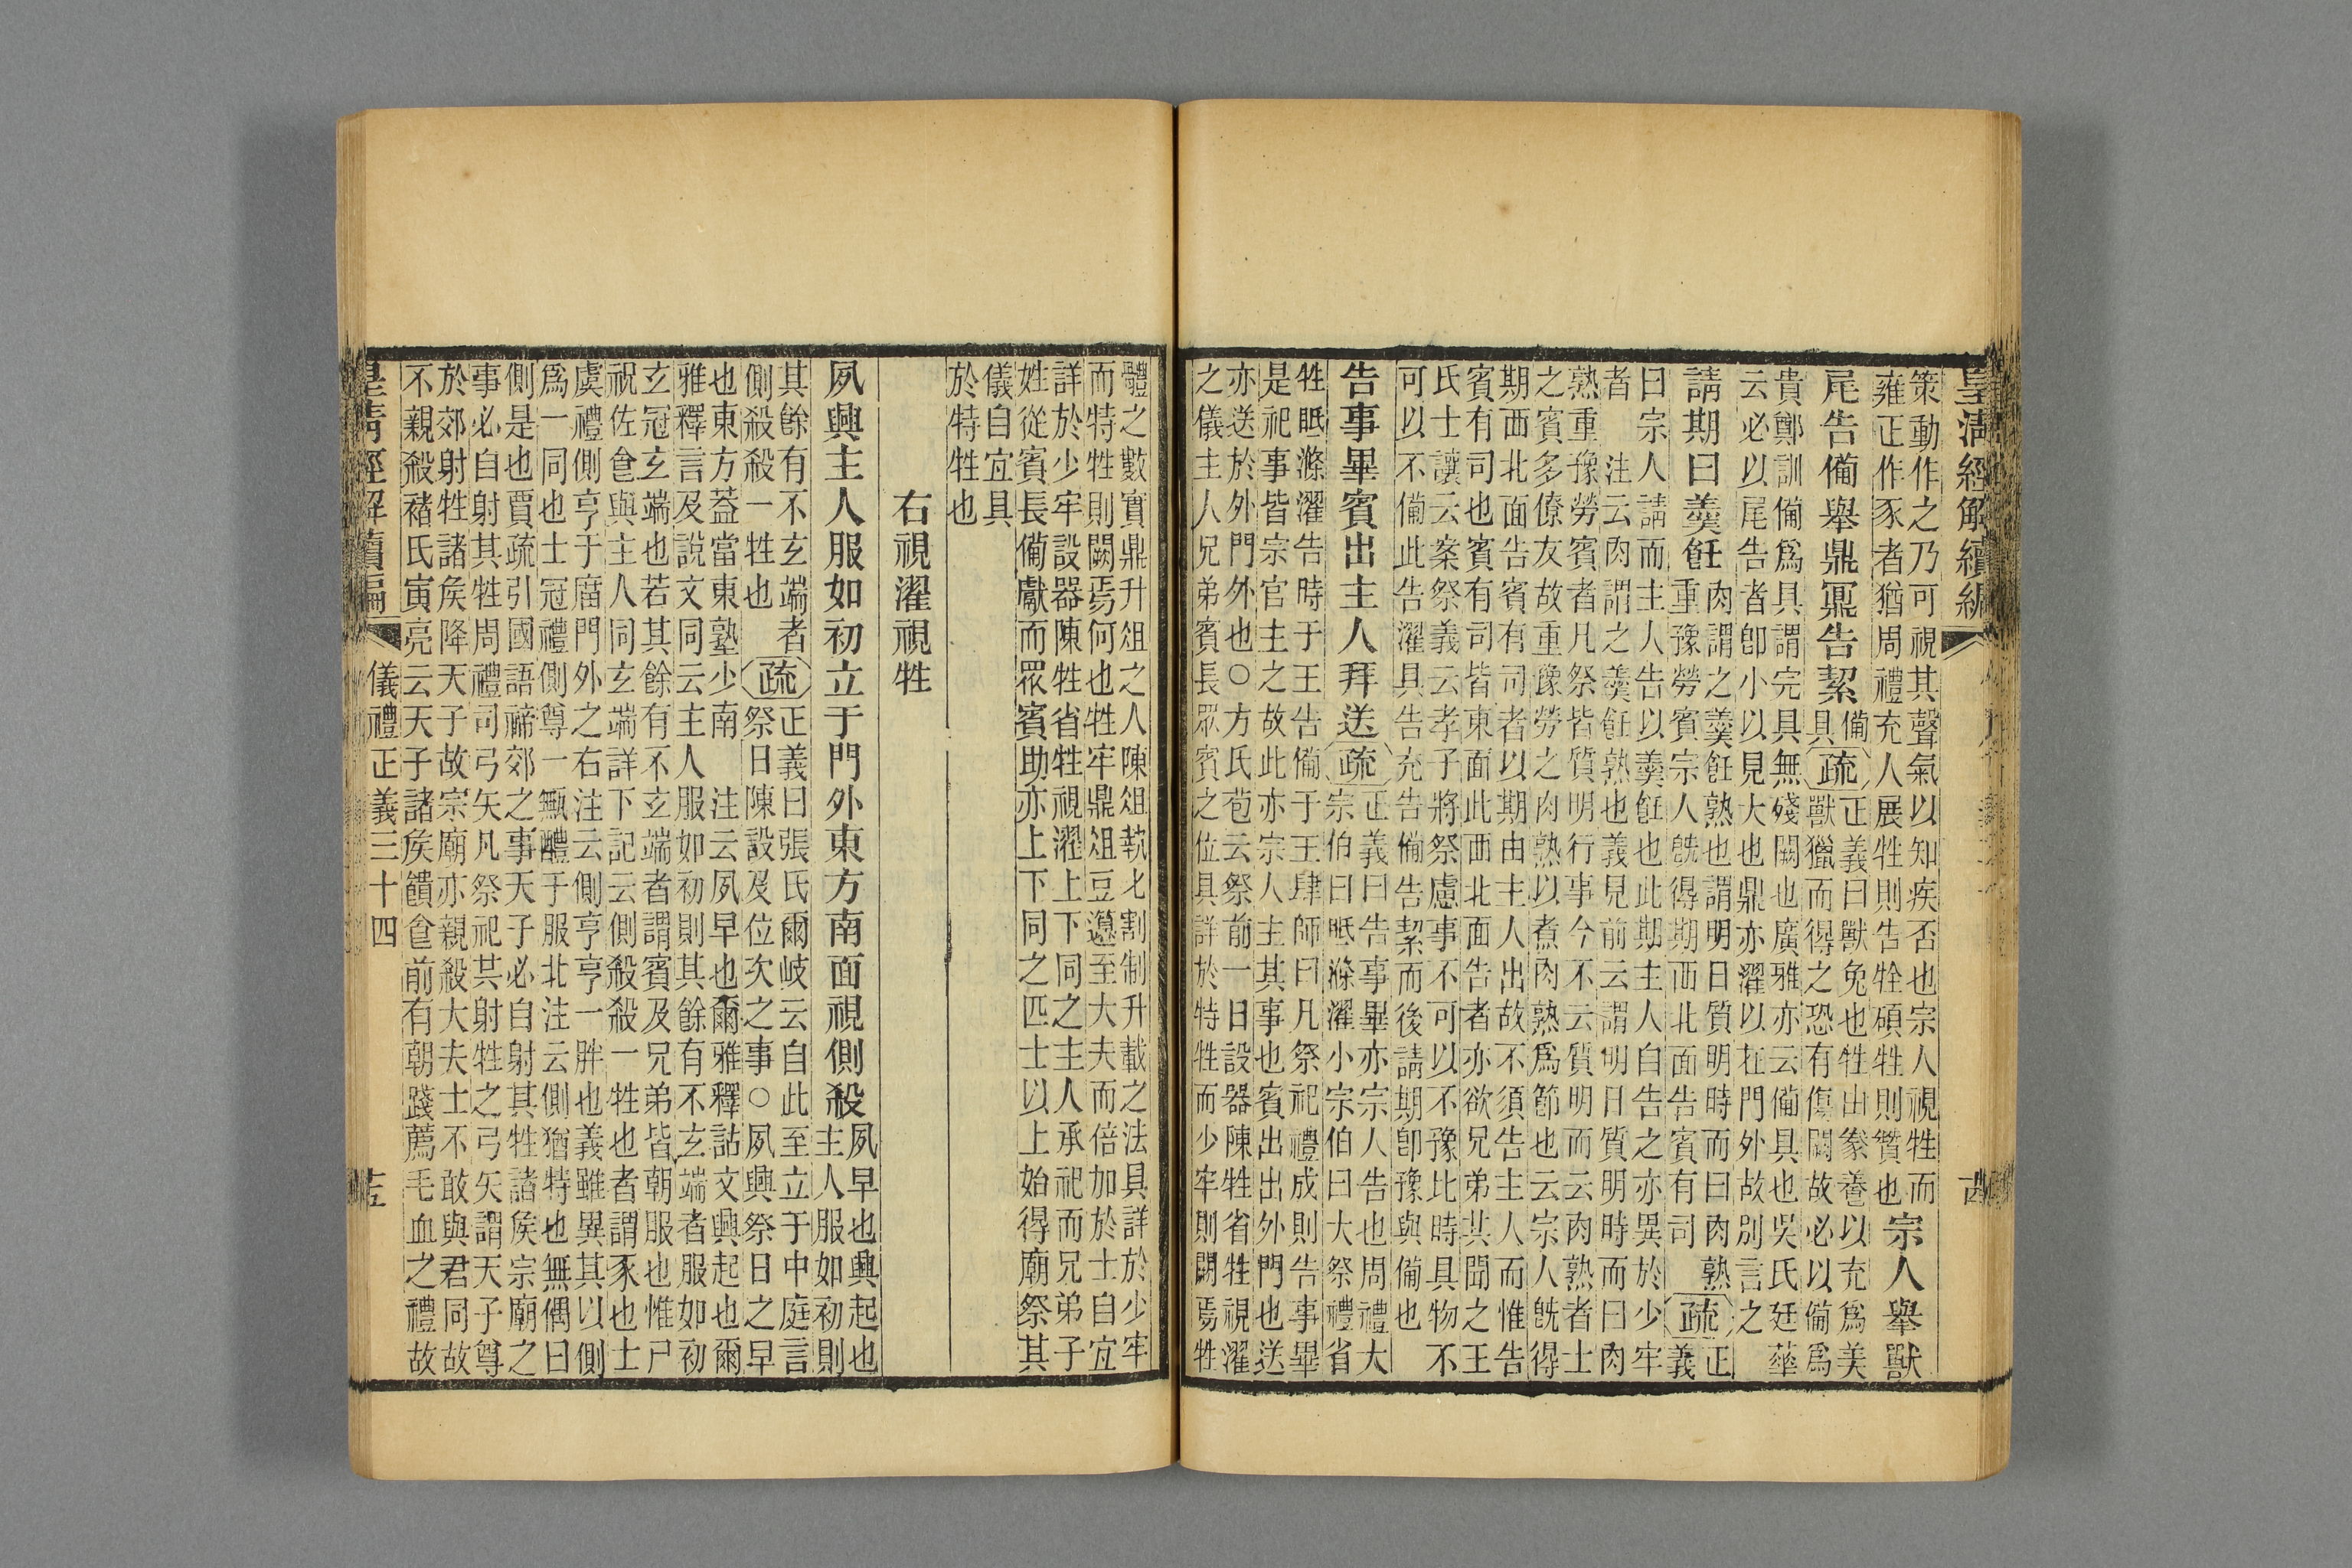 皇清經解續編
策動作之乃可視其聲氣以知疾否也宗人視牲而
雍正作豕者猶周禮充人展牲則告牷碩牲則贊也
宗人舉獸
尾告備舉鼎鼏告絜
備
具
疏
正義曰獸兔也牲由豢養以充爲美
獸獵而得之恐有傷闕故必以備爲
貴鄭訓備爲具謂完具無殘闕也廣雅亦云備具也吳氏廷華
云必以尾告者卽小以見大也鼎亦濯以在門外故別言之
請期曰羹飪
肉謂之羹飪熟也謂明日質明時而曰肉熟
重豫勞賓宗人旣得期西北面告賓有司
疏
正
義
曰宗人請而主人告以羹飪也此期主人自告之亦異於少牢
者 注云肉謂之羹飪熟也義見前云謂明日質明時而曰肉
熟重豫勞賓者凡祭皆質明行事今不云質明而云肉熟者士
之賓多僚友故重豫勞之肉熟以煮肉熟爲節也云宗人旣得
期西北面告賓有司者以期由主人出故不須告主人而惟告
賓有司也賓有司皆東面此西北面告者亦欲兄弟共聞之王
氏士讓云案祭義云孝子將祭慮事不可以不豫比時具物不
可以不備此告濯具告充告備告絜而後請期卽豫與備也
告事畢賓出主人拜送
疏
正義曰告事畢亦宗人告也周禮大
宗伯曰眡滌濯小宗伯曰大祭禮省
牲眡滌濯告時于王告備于王肆師曰凡祭祀禮成則告事畢
是祀事皆宗官主之故此亦宗人主其事也賓出出外門也送
亦送於外門外也○方氏苞云祭前一日設器陳牲省牲視濯
之儀主人兄弟賓長眾賓之位具詳於特牲而少牢則闕焉牲
體之數實鼎升俎之人陳俎執匕割制升載之法具詳於少牢
而特牲則闕焉何也牲牢鼎俎豆籩至大夫而倍加於士自宜
詳於少牢設器陳牲省牲視濯上下同之主人承祀而兄弟子
姓從賓長備獻而眾賓助亦上下同之匹士以上始得廟祭其
儀自宜具
於特牲也
右視濯視牲
夙興主人服如初立于門外東方南面視側殺
夙早也興起也
主人服如初則
其餘有不玄端者
側殺殺一牲也
疏
正義曰張氏爾岐云自此至立于中庭言
祭日陳設及位次之事○夙興祭日之早
也東方蓋當東塾少南 注云夙早也爾雅釋詁文興起也爾
雅釋言及說文同云主人服如初則其餘有不玄端者服如初
玄冠玄端也若其餘有不玄端者謂賓及兄弟皆朝服也惟尸
祝佐食與主人同玄端詳下記云側殺殺一牲也者謂豕也士
虞禮側亨于廟門外之右注云側亨亨一胖也義雖異其以側
爲一同也士冠禮側尊一甒醴于服北注云側猶特也無偶曰
側是也賈疏引國語禘郊之事天子必自射其牲諸矦宗廟之
事必自射其牲周禮司弓矢凡祭祀共射牲之弓矢謂天子尊
於郊射牲諸矦降天子故宗廟亦親殺大夫士不敢與君同故
不親殺褚氏寅亮云天子諸矦饋食前有朝踐薦毛血之禮故
皇清經解續編
儀禮正義三十四